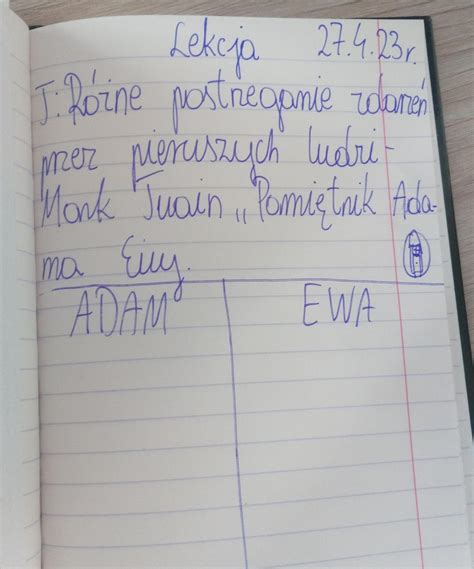 Lekcja 27.4.23r.
T: Różne postrzeganie zdarzeń
przez pierwszych ludzi-
Mark Twain „Pamiętnik Ada-
ma Ewy.
ADAM EWA